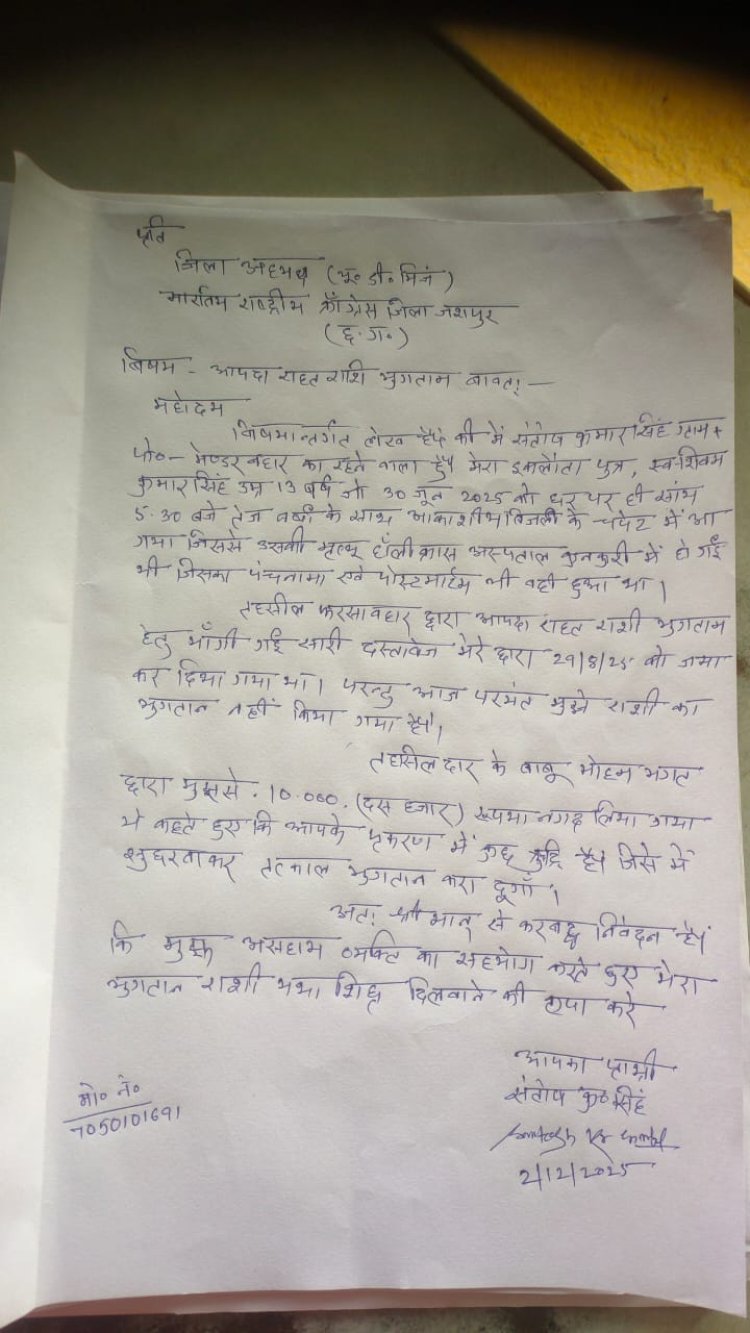 प्रति
जिला अध्यक्ष (यू० डी० मिंज)
भारतिय राष्ट्रीय काँग्रेस जिला जशपुर
(छ.ग.)
बिषय - आपदा राहत राशि भुगतान बावत! -
महोदय
बिषयान्तर्गत लेख हैं की में संतोष कुमार सिंह ग्राम +
पो०- मेण्डरबहार का रहने वाला हुँ मेरा इकलौता पुत्र, स्व० शिवम
कुमार सिंह उम्र 13 बर्ष जो 30 जून 2025 को घर पर ही सांम
5.30 बजे तेज वर्षा के साथ आकाशीय बिजली के चपेट में आ
गया जिससे उसकी मृत्यू हॉली क्रास अस्पताल कुनकुरी में हो गई
थी जिसका पंचनामा एवं पोस्टमार्टम भी वही हुआ था।
तहसील फरसाबहार द्वारा आपदा राहत राशी भुगतान
हेतु माँगी गई सारी दस्तावेज मेरे द्वारा 29/8/25 को जमा
कर दिया गया था। परन्तु आज परयंत मुझे राशी का
भुगतान नहीं किया गया हैं।
तहसीलदार के बाबू मोहन भगत
द्वारा मुझसे. 10.000. (दस हजार) रूपया नगद लिया गया
ये कहते हुए कि आपके प्रकरण में कुछ त्रुटि हैं जिसे में
सुधरवाकर तत्काल भुगतान करा दूगाँ।
अत! श्री मान् से करबद्ध निवेदन हैं
कि मुझ असहाय व्यक्ति का सहयोग करते हुए मेरा
भुगतान राशी यथा शिघ्र दिलवाने की कृपा करे
आपका प्रार्थी
संतोष कु० सिंह
मो० नं०
7050101691
2/12/2025